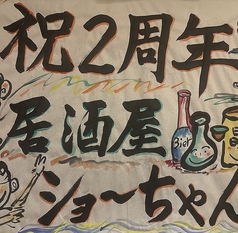 祝2周年
居酒屋
Bier
ショーちゃん